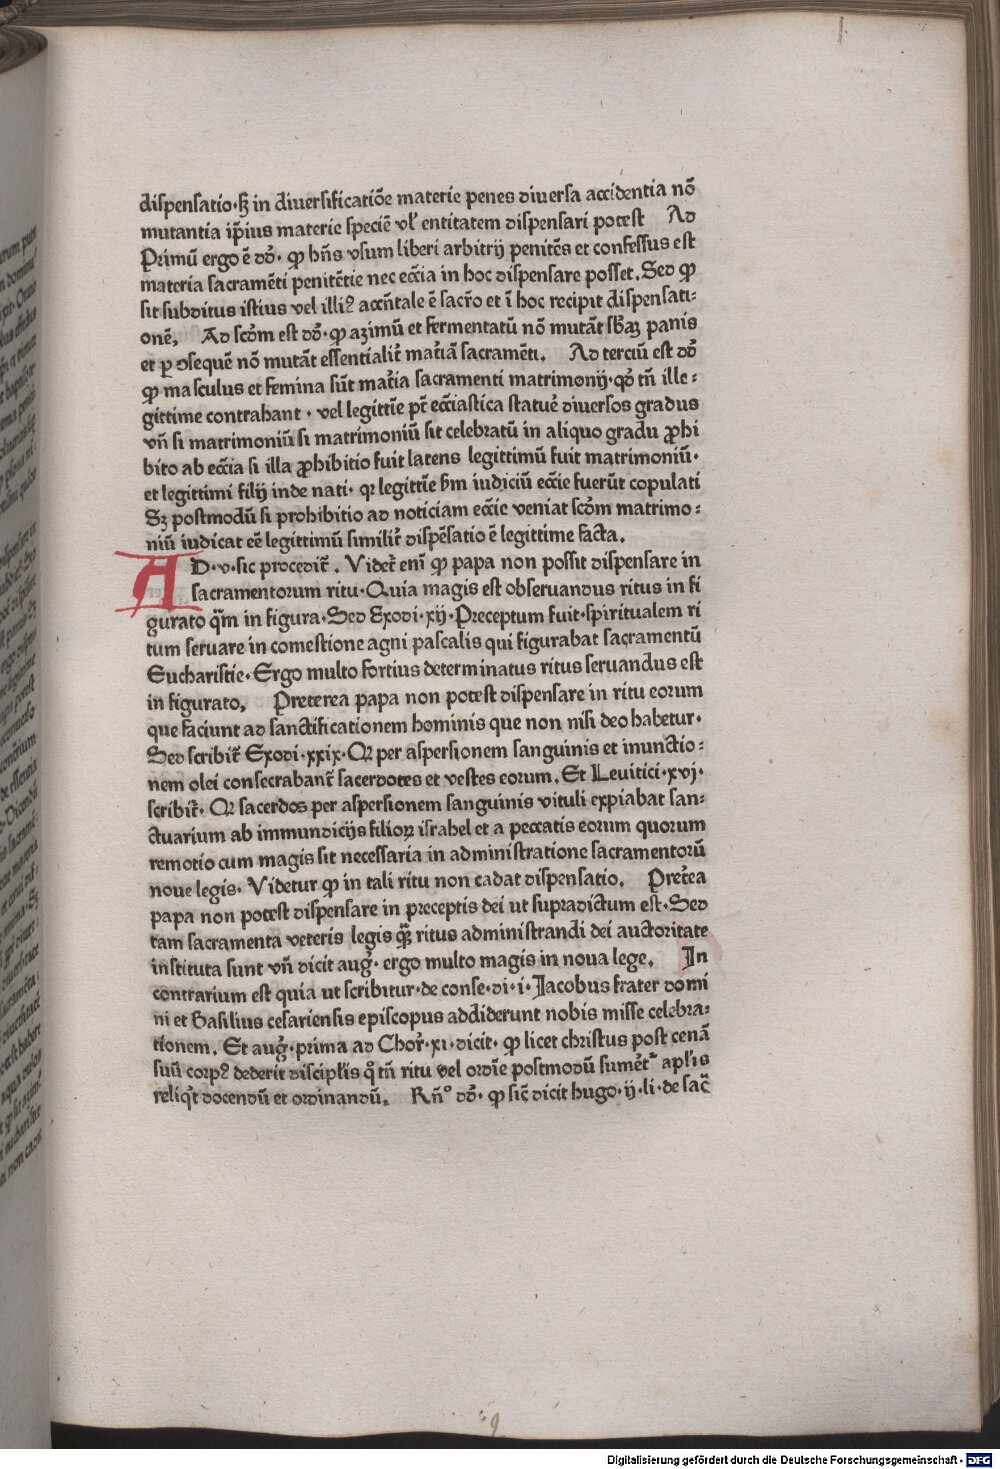 dispensatio·sꝫ in diuersificatiõe materie penes diuersa accidentia nõ
mutantia ip̃ius materie speciẽ vl̕ entitatem dispensari potest Ad
Primũ ergo ẽ dd̕· ꝙ hñs vsum liberi arbitrij penitẽs et confessus est
materia sacramẽti penitẽtie nec ecc̃ia in hoc dispensare posset. Sed ꝙ
sit subditus istius vel illiꝰ accñtale ẽ sacr̃o et ĩ hoc recipit dispensati⸗
onẽ. Ad scd̃m est dd̕· ꝙ azimũ et fermentatũ nõ mutãt sb̃aꝫ panis
et p ꝯsequẽ nõ mutãt essentialit̃ mat̃iã sacramẽti. Ad terciũ est dd̕
ꝙ masculus et femina sũt mat̃ia sacramenti matrimonij·qd̕ tñ ille⸗
gittime contrahant · vel legittĩe pt̃ ecc̃iastica statuẽ diuersos gradus
vñ si matrimoniũ si matrimoniũ sit celebratũ in aliquo gradu ꝓhi
bito ab ecc̃ia si illa ꝓhibitio fuit latens legittimũ fuit matrimoniũ·
et legittimi filij inde nati· qꝛ legittĩe ẜm iudiciũ ecc̃ie fuerũt copulati
Sꝫ postmodũ si prohibitio ad noticiam ecc̃ie veniat scd̃m matrimo⸗
niũ iudicat eẽ legittimũ similit̃ dispẽsatio ẽ legittime facta.
AD·v·sic procedit̃. Videt̃ eni᷒ ꝙ papa non possit dispensare in
sacramentorum ritu· Quia magis est obseruandus ritus in fi
gurato q̃m in figura· Sed Exodi·xij· Preceptum fuit·spiritualem ri
tum seruare in comestione agni pascalis qui figurabat sacramentũ
Eucharistie· Ergo multo fortius determinatus ritus seruandus est
in figurato. Preterea papa non potest dispensare in ritu eorum
que faciunt ad sanctificationem hominis que non nisi deo habetur·
Sed scribit̃ Exodi·xxix· Qꝛ per aspersionem sanguinis et inunctio⸗
nem olei consecrabant̃ sacerdotes et vestes eorum. Et Leuitici·xvj·
scribit̃· Qꝛ sacerdos per aspersionem sanguinis vituli expiabat san⸗
ctuarium ab immundicijs filioꝝ israhel et a peccatis eorum quorum
remotio cum magis sit necessaria in administratione sacramentorũ
noue legis· Videtur ꝙ in tali ritu non cadat dispensatio. Pret̃ea
papa non potest dispensare in preceptis dei ut supradictum est· Sed
tam sacramenta veteris legis qꝫ̃ ritus administrandi dei auctoritate
instituta sunt vñ dicit aug̕· ergo multo magis in noua lege. In
contrarium est quia ut scribitur·de conse·di·i·Jacobus frater domi
ni et Basilius cesariensis episcopus addiderunt nobis misse celebra⸗
tionem. Et aug̕·prima ad Chor̃·xi·dicit· ꝙ licet christus post cenã
suũ corpꝰ dederit discipl̕is qͦ tñ ritu vel ordĩe postmodũ sumet̃ʳ apl̕is
reliq̕t docendũ et ordinandũ. Rñ° dd̕· ꝙ sic̃ dicit hugo·ij·li·de sac̃
Digitalisierung gefördert durch die Deutsche Forschungsgemeinschaft - DFG